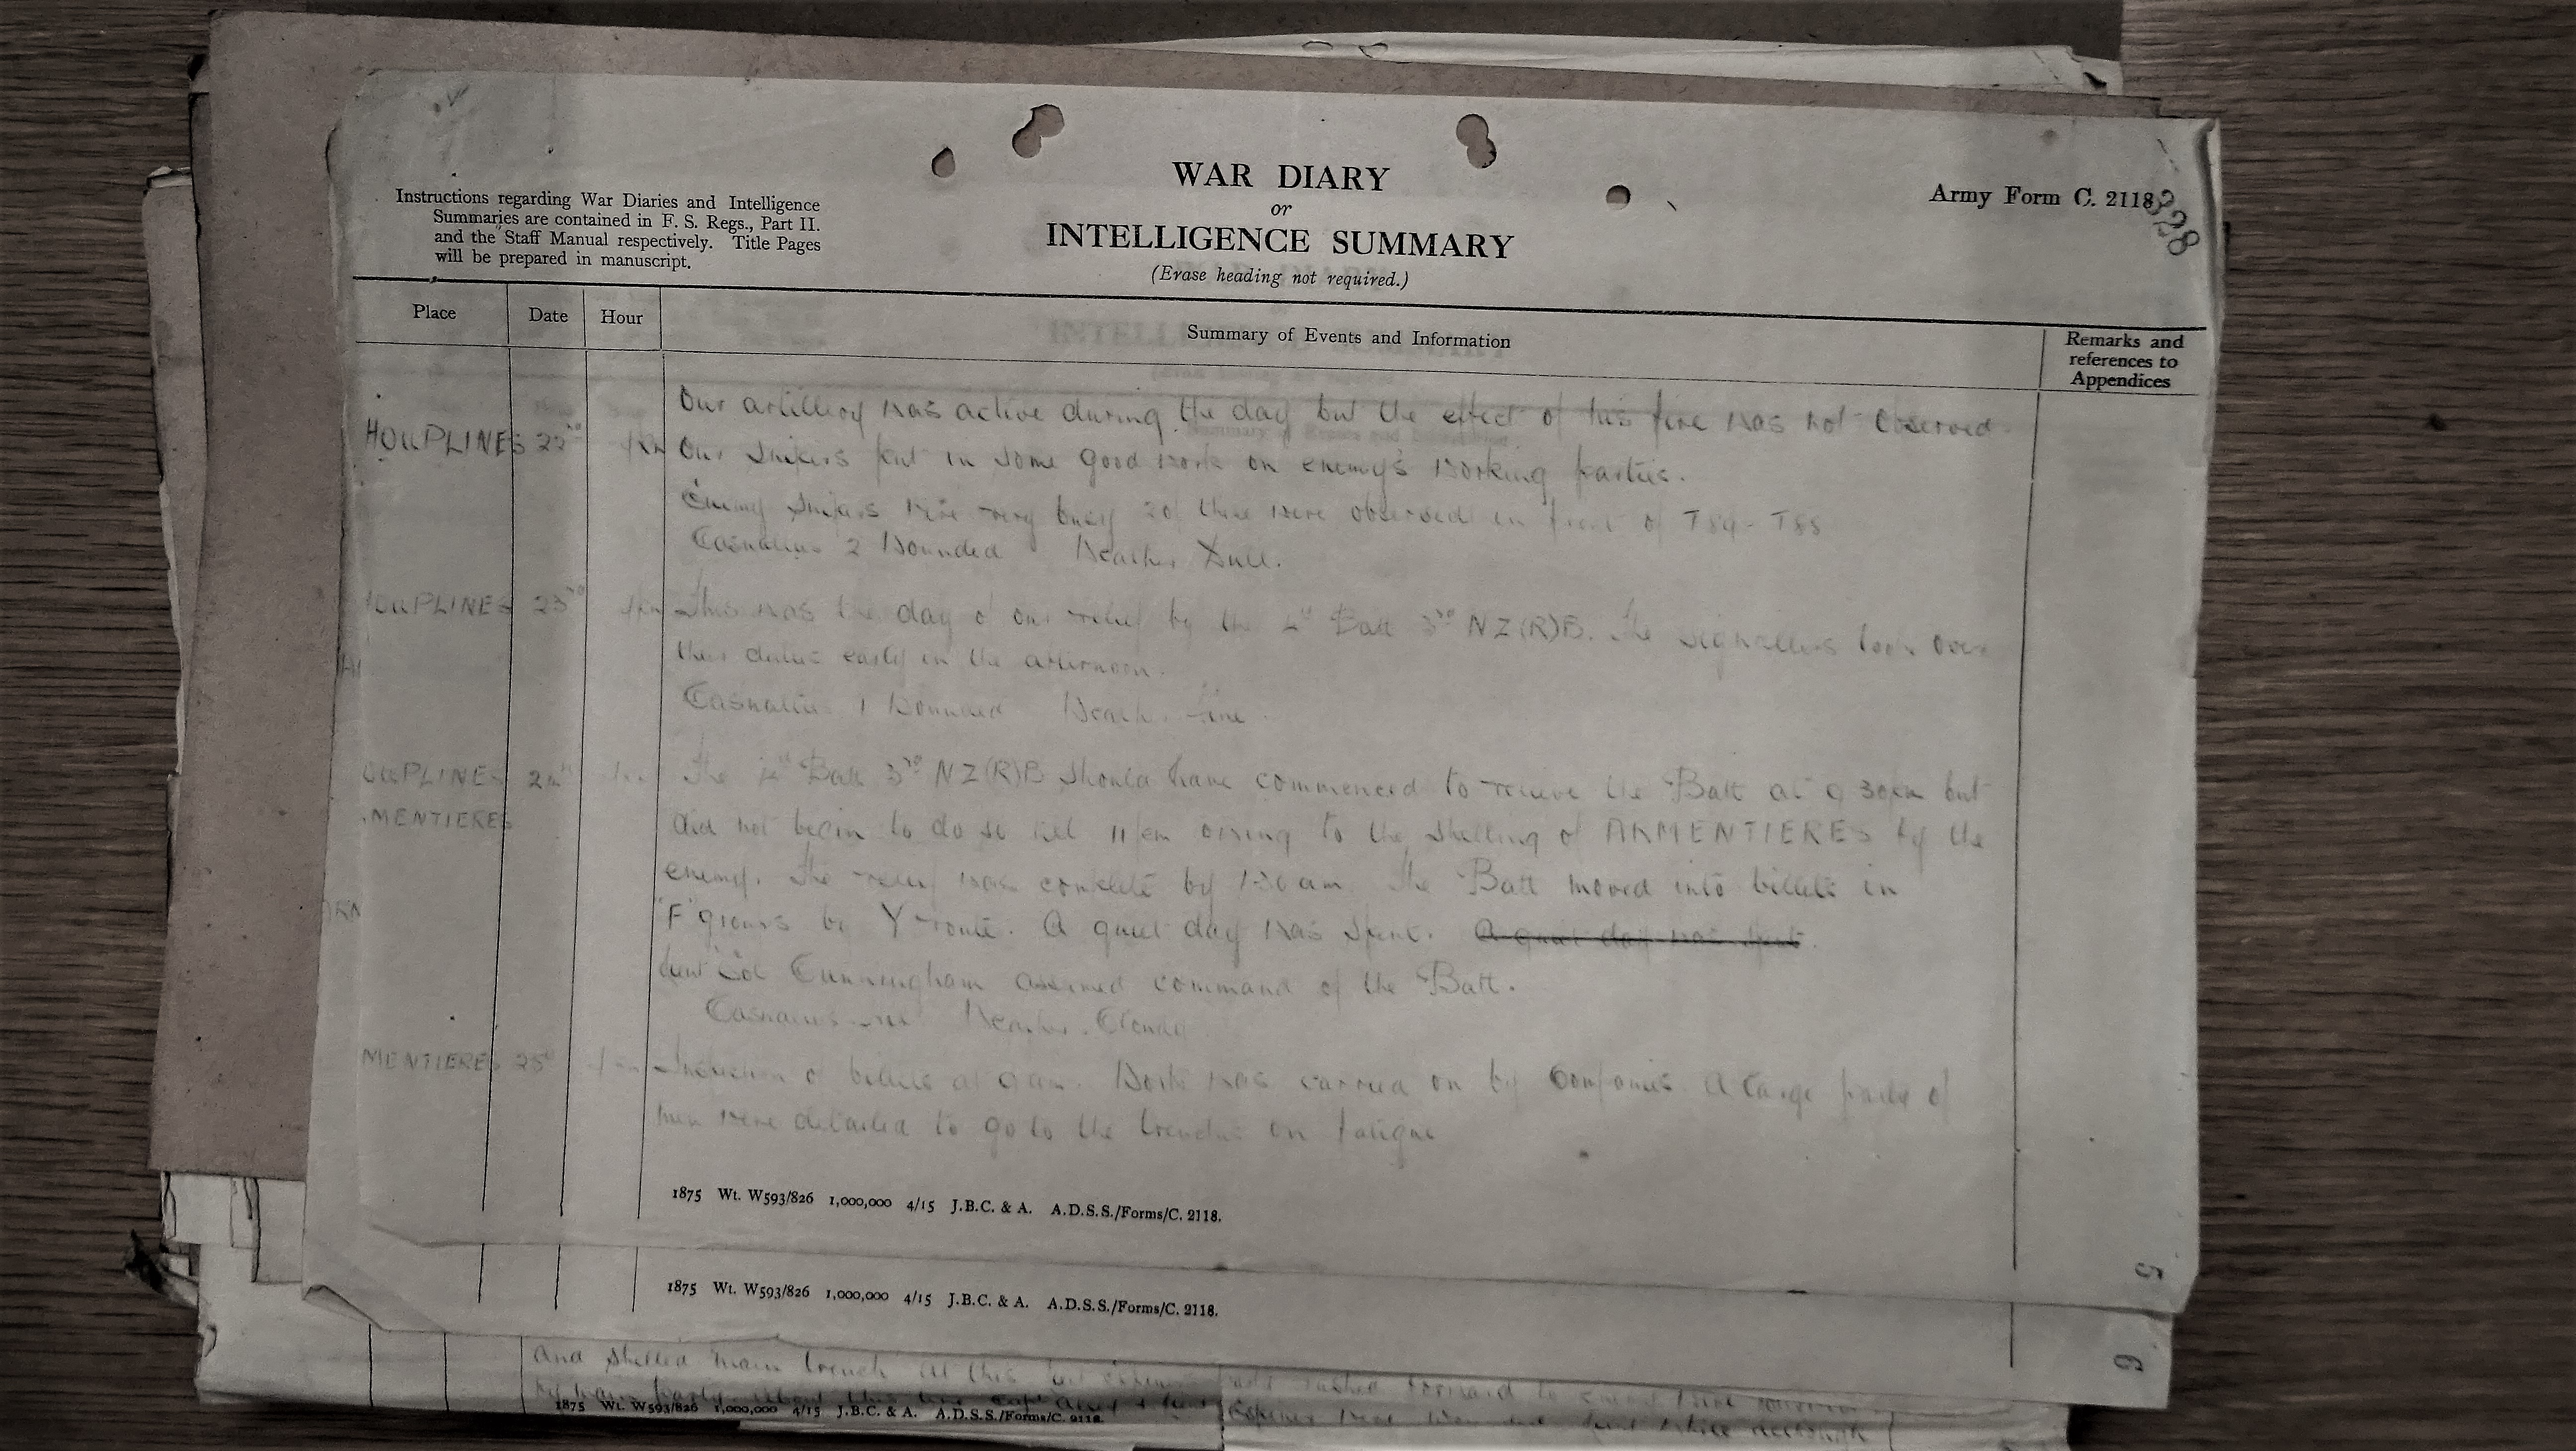 WAR DIARY
or
INTELLIGENCE SUMMARY
(Erase heading not required.)
Instructions regarding War Diaries and Intelligence
Summaries are contained in F. S. Regs., Part II.
and the Staff Manual respectively. Title Pages
will be prepared in manuscript.
Army Form C. 2118
328
Place Date Hour Summary of Events and Information Remarks and references to Appendices
Our artillery was active during the day but the effect of his fire was not observed
HOUPLINES 22nd Our Snipers put in some good work on enemy's working parties.
Enemy Snipers were very busy 20 of these were observed in front of T84 - T88
Casualties 2 Wounded Weather Dull.
HOUPLINES 23rd This was the day of our relief by the 4th Batt 3rd NZ(R)B. The Signallers took over
their duties early in the afternoon.
Casualties 1 Wounded Weather fine.
OUPLINES 24th The 4th Batt 3rd NZ(R)B should have commenced to relieve the Batt at 9.30pm but
MENTIERES did not begin to do so till 11pm owing to the shelling of ARMENTIERES by the
enemy. The relief was complete by 1-30 am. The Batt moved into billets in
"F" groups by Y route. A quiet day was spent. A quiet day was spent.
Lieut Col Cunningham assumed command of the Batt.
Casualties nil Weather Cloudy
MENTIERES 25th Inspection of billets at 9 am. Work was carried on by Companies A large party of
men were detailed to go to the trenches on fatigue
1875 Wt. W593/826 1,000,000 4/15 J.B.C. & A. A.D.S.S./Forms/C. 2118.
5
1875 Wt. W593/826 1,000,000 4/15 J.B.C. & A. A.D.S.S./Forms/C. 2118.
6
and shelled main trench at this rushed forward to
1875 Wt. W593/826 1,000,000 4/15 J.B.C. & A. A.D.S.S./Forms/C. 2118.